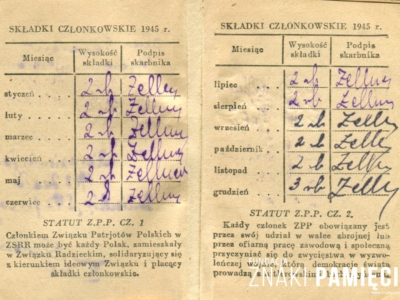 SKŁADKI CZŁONKOWSKIE 1945 r.
Miesiąc Wysokość składki Podpis skarbnika
styczeń . . . . 2 rb Zellner
luty . . . . 2 rb Zellner
marzec . . . 2 rb Zellner
kwiecień . . . 2 rb Zellner
maj . . . . 2 rb Zellner
czerwiec . . . 2 rb Zellner
STATUT Z.P.P. CZ. 1
Członkiem Związku Patrjotów Polskich w
ZSRR może być każdy Polak, zamieszkały
w Związku Radzieckim, solidaryzujący się
z kierunkiem ideowym Związku i płacący
składki członkowskie.
SKŁADKI CZŁONKOWSKIE 1945 r.
Miesiąc Wysokość składki Podpis skarbnika
lipiec . . . 2 rb Zellner
sierpień . . . 2 rb Zellner
wrzesień . . 2 rb Zelln
październik . . 2 rb Zelln
listopad . . . 2 rb Zelln
grudzień . . . 3 rb Zelln
STATUT Z.P.P. CZ. 2.
Każdy członek ZPP obowiązany jest
przez swój udział w walce zbrojnej lub
przez ofiarną pracę zawodową i społeczną
przyczyniać się do zwycięstwa w wyzwo-
leńczej wojnie, którą demokracje świata
prowadzą
ZNAKI PAMIĘCI